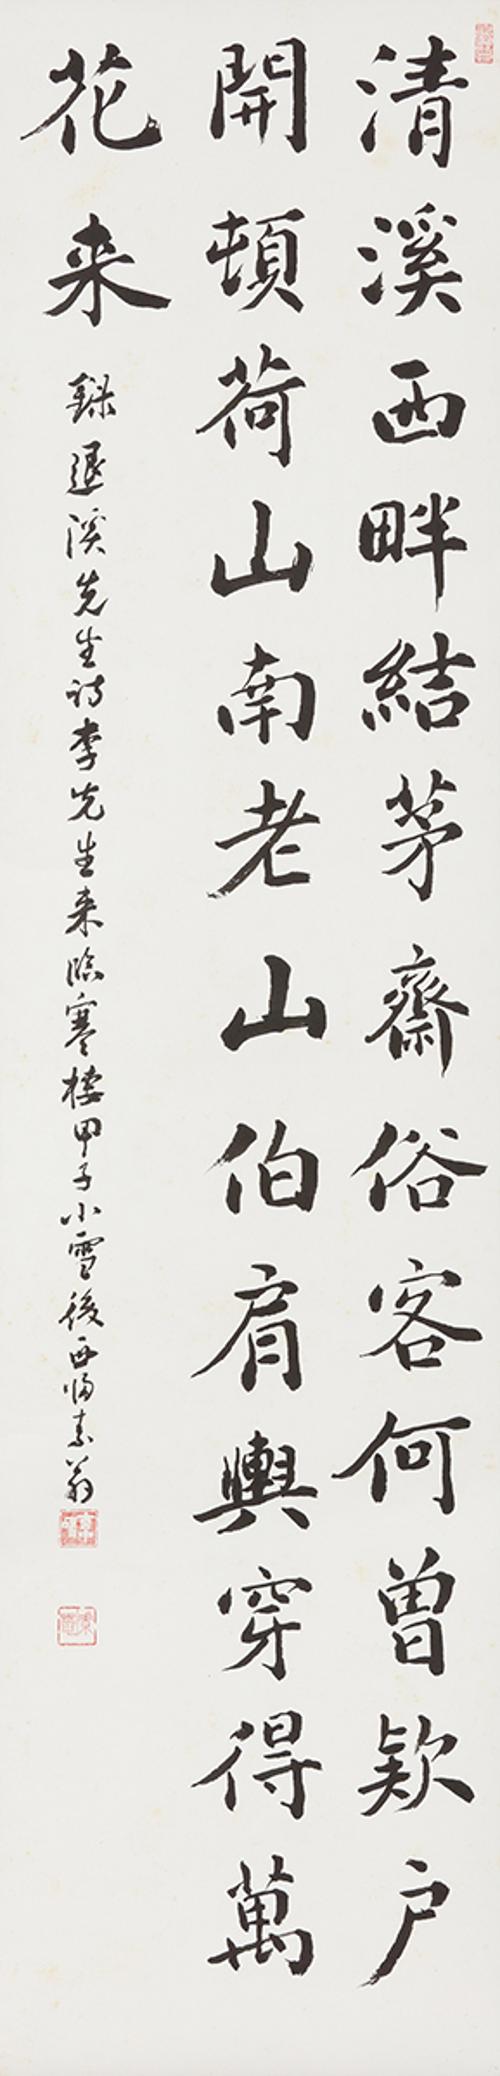 清溪西畔結茅齋俗客何曾欵户
開頓荷山南老山伯肩輿穿得萬
花来
録退溪先生詩李先生来臨寒棲甲子小雪後西归素翁